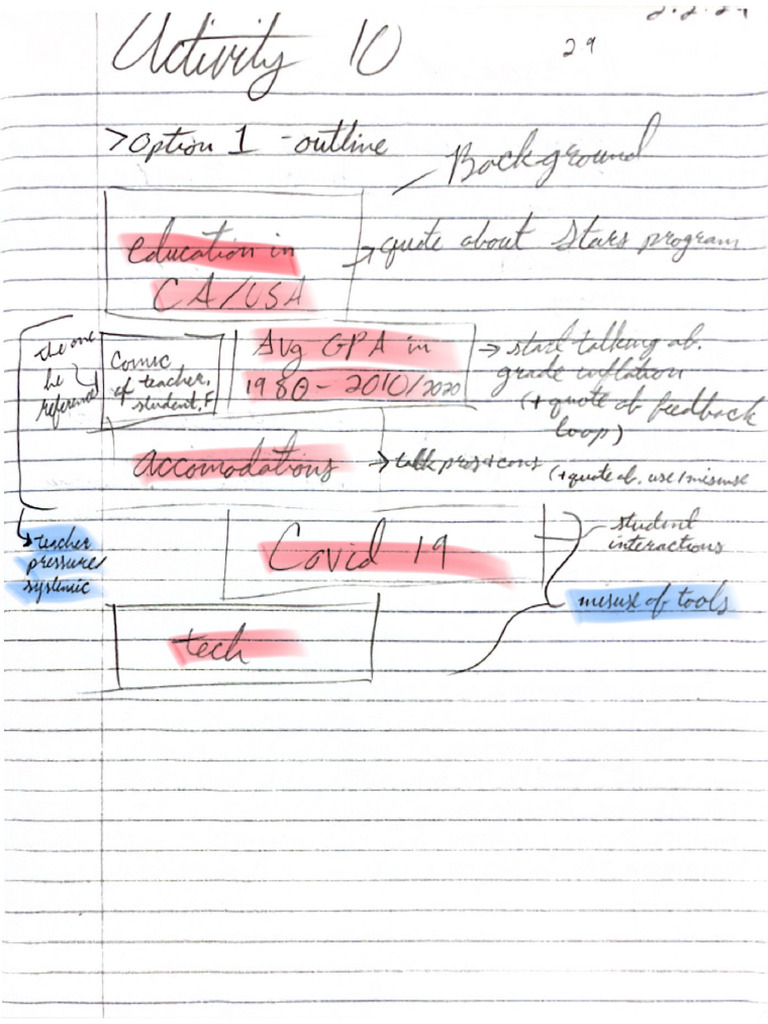 Activity 10
29
>Option 1 - outline
Background
education in
CA/USA
→ quote about Stars program
The one
he
references
Comic
of teacher,
student, F
Avg GPA in
1980 - 2010/2020
→ start talking ab.
grade inflation
(+ quote ab feedback
loop)
accomodations
→ talk pros + cons
(+ quote ab. use/misuse
→ teacher
pressure/
systemic
Covid 19
student
interactions
misuse of tools
tech